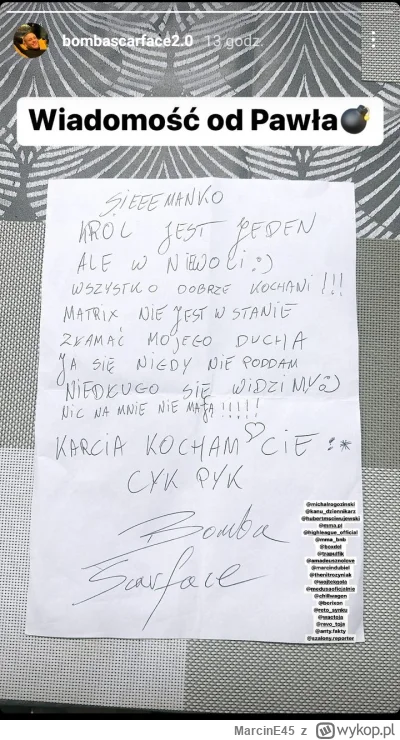 bombascarface2.0 13 godz.
Wiadomość od Pawła
SIEEEMANKO
KRÓL JEST JEDEN
ALE W NIEWOLI :)
WSZYSTKO DOBRZE KOCHANI !!!
MATRIX NIE JEST W STANIE
ZŁAMAĆ MOJEGO DUCHA
JA SIĘ NIGDY NIE PODDAM
NIEDŁUGO SIĘ WIDZIMY :)
NIC NA MNIE NIE MAJĄ !!!!!
KARCIA KOCHAM ♡ CIE :*
CYK PYK
Bomba
Scarface
@michalrogozinski
@kanu_dziennikarz
@hubertmsciwujewski
@mma.pl
@highleague_official
@mma_bnb
@boxdel
@trapulfik
@amadeusznolove
@marcindubiel
@thenitrozyniak
@wojtekgola
@medusaoficjalnie
@chillwagen
@borixon
@reto_synku
@wactoja
@revo_toja
@anty.fakty
@szalony.reporter
MarcinE45 z wykop.pl